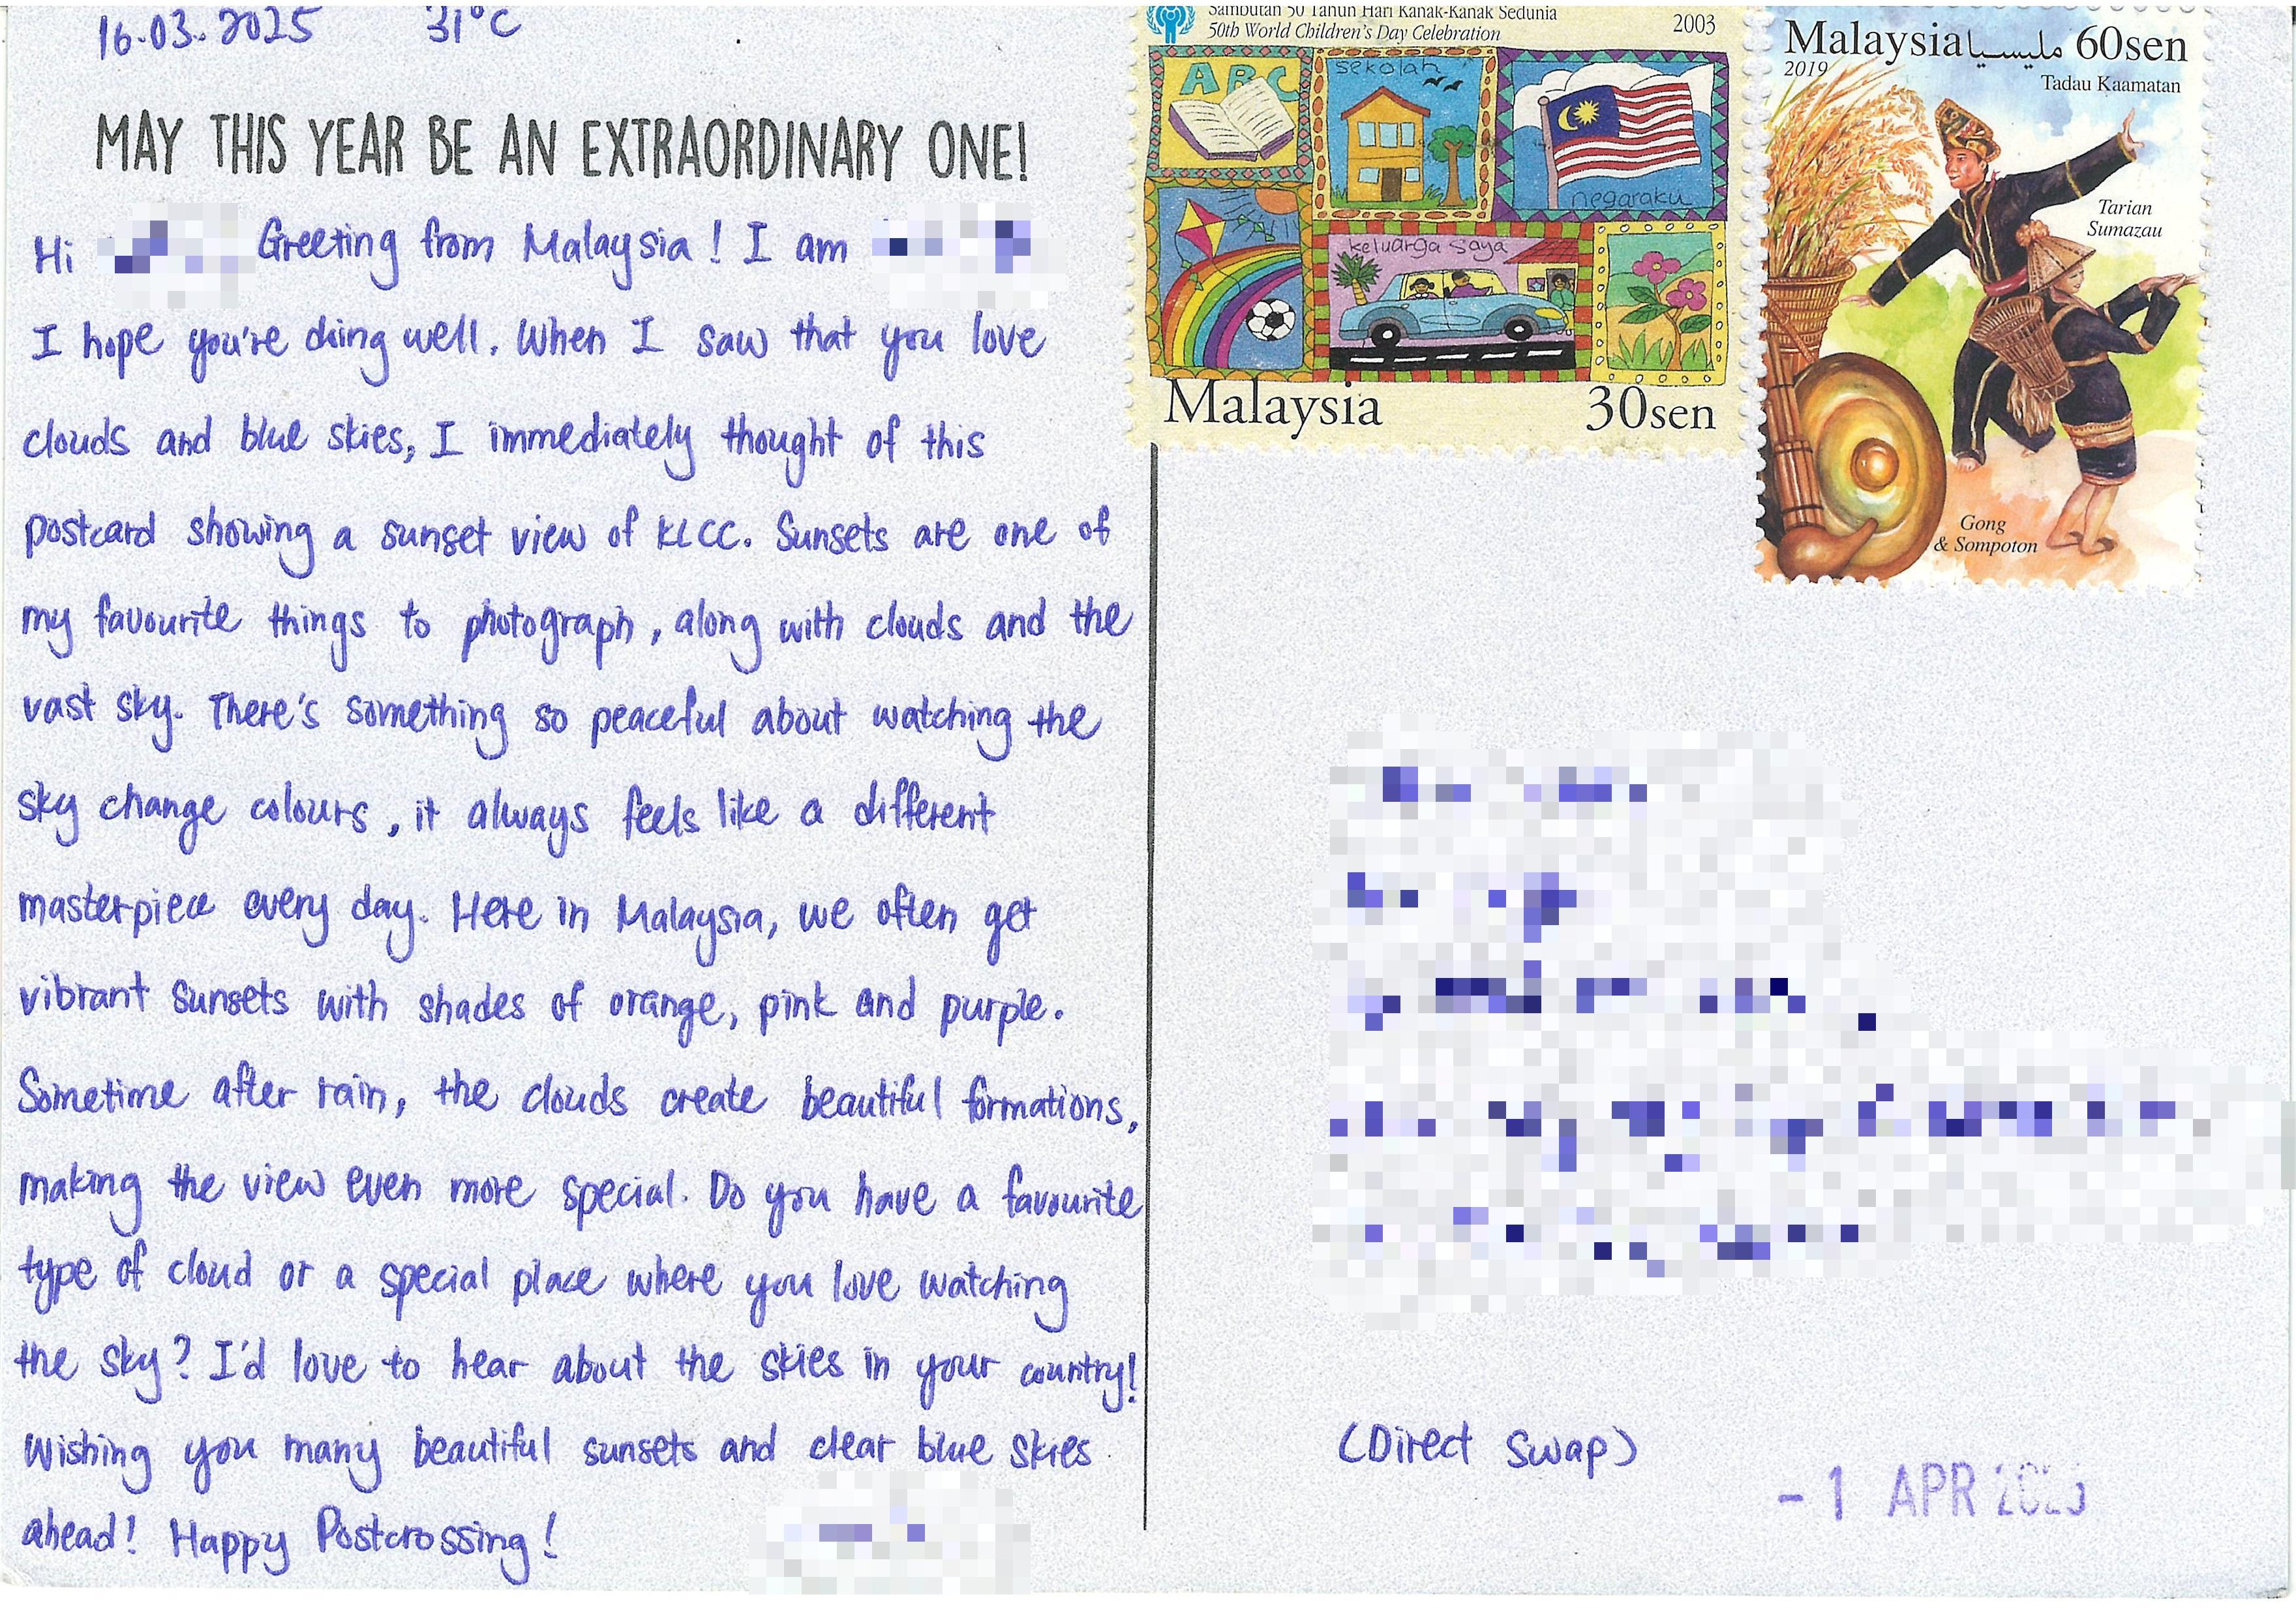 16.03.2025 31°C
MAY THIS YEAR BE AN EXTRAORDINARY ONE!
Hi Greeting from Malaysia! I am
I hope you're doing well. When I saw that you love
clouds and blue skies, I immediately thought of this
postcard showing a sunset view of KLCC. Sunsets are one of
my favourite things to photograph, along with clouds and the
vast sky. There's something so peaceful about watching the
sky change colours, it always feels like a different
masterpiece every day. Here in Malaysia, we often get
vibrant sunsets with shades of orange, pink and purple.
Sometime after rain, the clouds create beautiful formations,
making the view even more special. Do you have a favourite
type of cloud or a special place where you love watching
the sky? I'd love to hear about the skies in your country!
Wishing you many beautiful sunsets and clear blue skies
ahead! Happy Postcrossing!
Sambutan 50 Tahun Hari Kanak-Kanak Sedunia
50th World Children's Day Celebration
2003
ABC
sekolah
negaraku
keluarga saya
Malaysia 30sen
Malaysia مليسيا 60sen
2019
Tadau Kaamatan
Tarian
Sumazau
Gong
& Sompoton
(Direct Swap)
-1 APR 2025